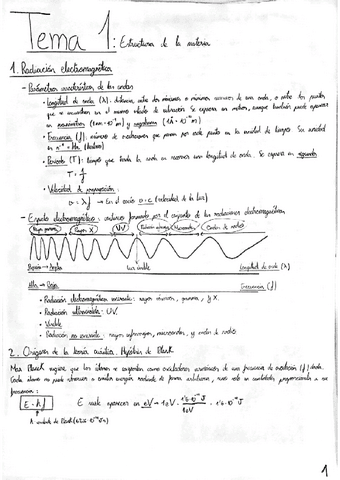 Tema 1: Estructura de la materia
1. Radiación electromagnética
- Parámetros característicos de las ondas
• Longitud de onda (λ): distancia entre dos máximos o mínimos de una onda, o entre dos puntos
que se encuentran en el mismo estado de vibración. Se expresa en metros, aunque también puede expresarse
en nanómetros (1nm = 10⁻⁹m) y angstroms (1Å = 10⁻¹⁰m)
• Frecuencia (f): número de oscilaciones que pasan por cada punto en la unidad de tiempo. Su unidad
es s⁻¹ = Hz (Hertzio)
• Periodo (T): tiempo que tarda la onda en recorrer una longitud de onda. Se expresa en segundos
T = 1/f
• Velocidad de propagación:
v = λf → En el vacío v = c (velocidad de la luz)
- Espectro electromagnético: conjunto formado por el conjunto de las radiaciones electromagnéticas
Rayos gamma Rayos X UV Microondas Ondas de radio
Luz visible Longitud de onda (λ)
Alta → Baja Frecuencia (f)
• Radiación electromagnética ionizante: rayos cósmicos, gamma, y X.
• Radiación ultravioleta: UV.
• Visible
• Radiación no ionizante: rayos infrarrojos, microondas, y ondas de radio
2. Orígenes de la teoría cuántica. Hipótesis de Planck
Max Planck sugiere que los átomos se comportan como osciladores armónicos de una frecuencia de oscilación (f) dada.
Cada átomo no puede absorber o emitir energía radiante de forma arbitraria, sino solo en cantidades proporcionales a su
frecuencia:
E = hf E suele aparecer en eV → 10V ·
1